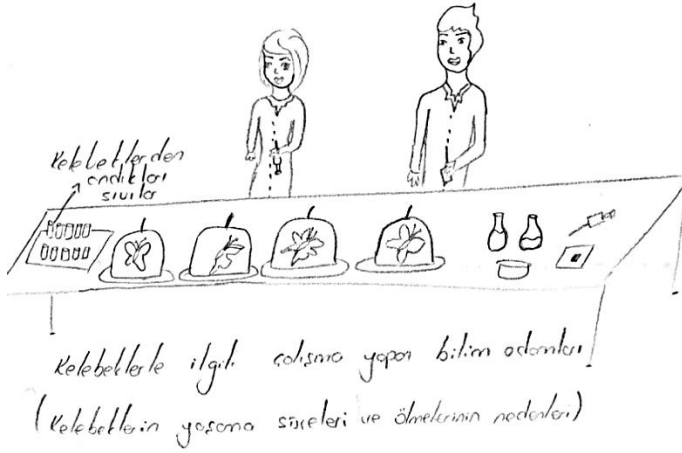 Kelebeklerden
andıkları
sıvılar
Kelebeklerle ilgili çalışma yapan bilim adamları
(Kelebeklerin yaşama süreleri ve ölmelerinin nedenleri)